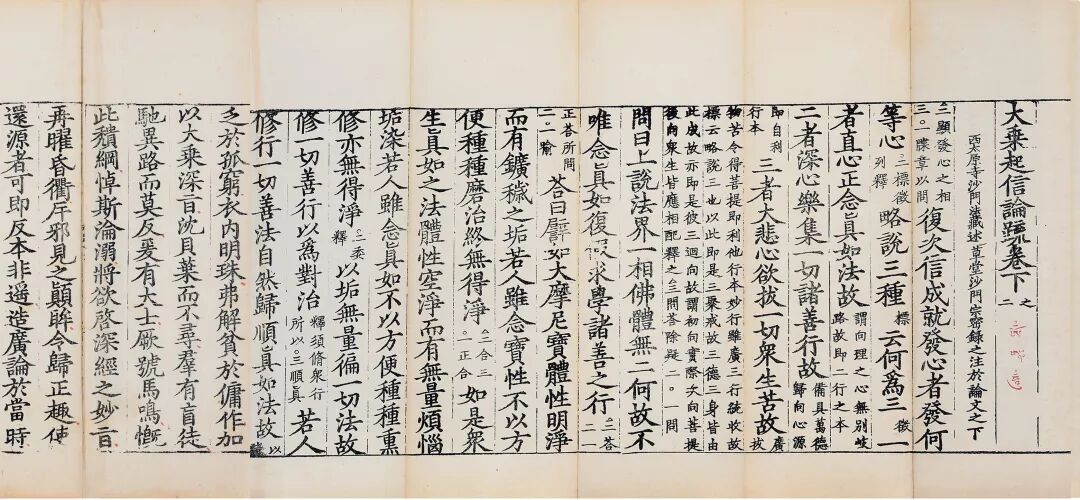 大乗起信論疏卷下 之二
西太原寺沙門法藏述草堂沙門宗密録之注於論文之下
三顯發心之相三○一牒章以問 復次信成就發心者發何
等心 三標徵列釋 略說三種 標 云何為三 徵 一
者直心正念真如法故 謂向理之心無別岐路故即二行之本
二者深心樂集一切諸善行故 備具萬德歸向心源
即自利行本 三者大悲心欲拔一切衆生苦故 廣拔
物苦令得菩提即利他行本妙行雖廣三行統收故
標云略說三也以此即是三聚戒故三德三身皆由
此成故亦即是彼三迴向故謂初向實際次向菩提
後向衆生皆應相配釋之△三問荅除疑二○一問
問曰上說法界一相佛體無二何故不
唯念真如復假求學諸善之行 △二荅二一
正荅所問二○一喻 荅曰譬如大摩尼寶體性明淨
而有鑛穢之垢若人雖念寶性不以方
便種種磨治終無得淨 △二合三○一正合 如是衆
生真如之法體性空淨而有無量煩惱
垢染若人雖念真如不以方便種種熏
修亦無得淨 △二委釋 以垢無量徧一切法故
修一切善行以為對治 釋須修衆行所以△三順真 若人
修行一切善法自然歸順真如法故 以
乏於孤窮衣內明珠弗解貧於傭作加
以大乘深旨沈貝葉而不尋羣有盲徒
馳異路而莫反爰有大士厥號馬鳴慨
此穨綱悼斯淪溺將欲啓深經之妙旨
再曜昏衢斥邪見之顛眸令歸正趣使
還源者可即反本非遥造廣論於當時